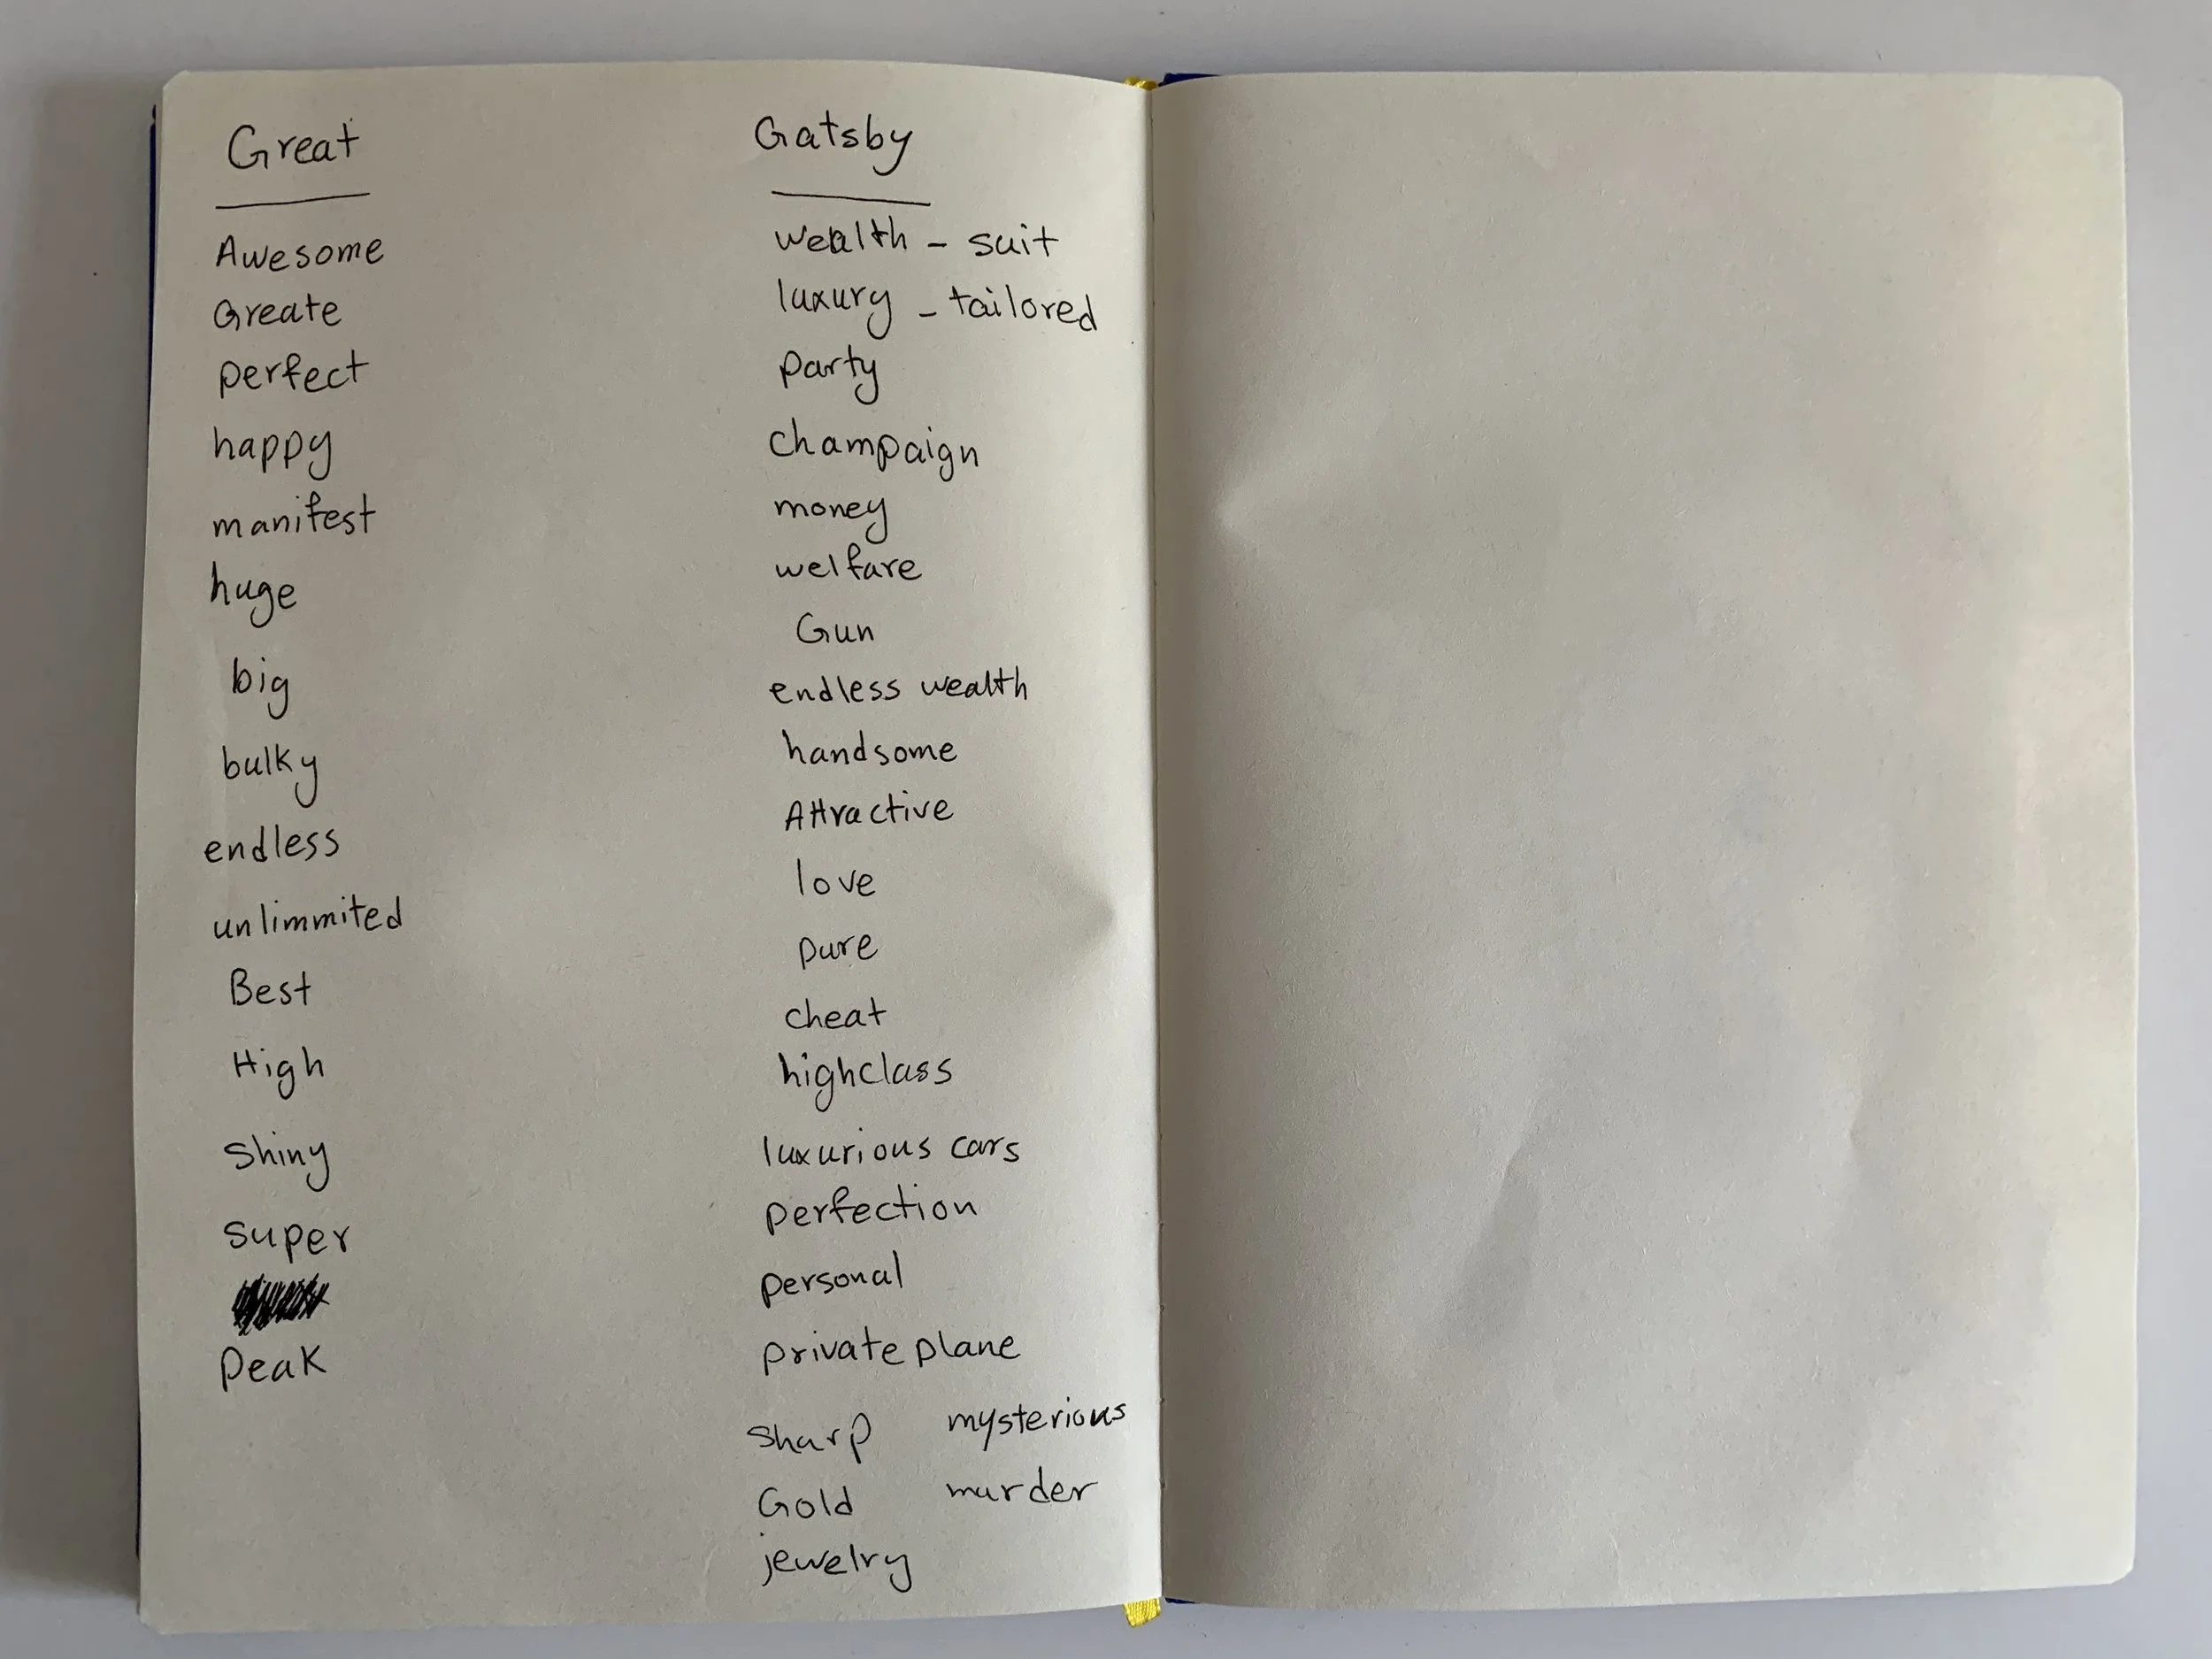 Great
Awesome
Greate
perfect
happy
manifest
huge
big
bulky
endless
unlimmited
Best
High
Shiny
super
Peak
Gatsby
wealth - suit
luxury - tailored
party
champaign
money
welfare
Gun
endless wealth
handsome
Attractive
love
pure
cheat
highclass
luxurious cars
perfection
personal
private plane
Sharp mysterious
Gold murder
jewelry